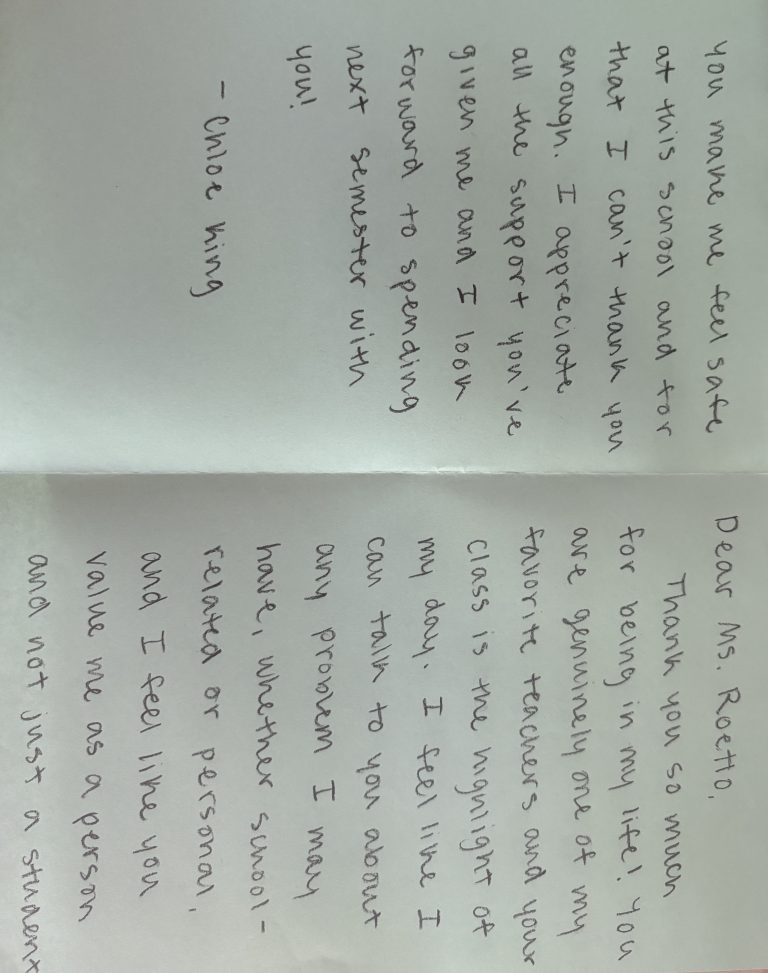 Dear Ms. Roetto,
Thank you so much
for being in my life! You
are genuinely one of my
favorite teachers and your
class is the highlight of
my day. I feel like I
can talk to you about
any problem I may
have, whether school-
related or personal,
and I feel like you
value me as a person
and not just a student
you make me feel safe
at this school and for
that I can't thank you
enough. I appreciate
all the support you've
given me and I look
forward to spending
next semester with
you!
- Chloe King